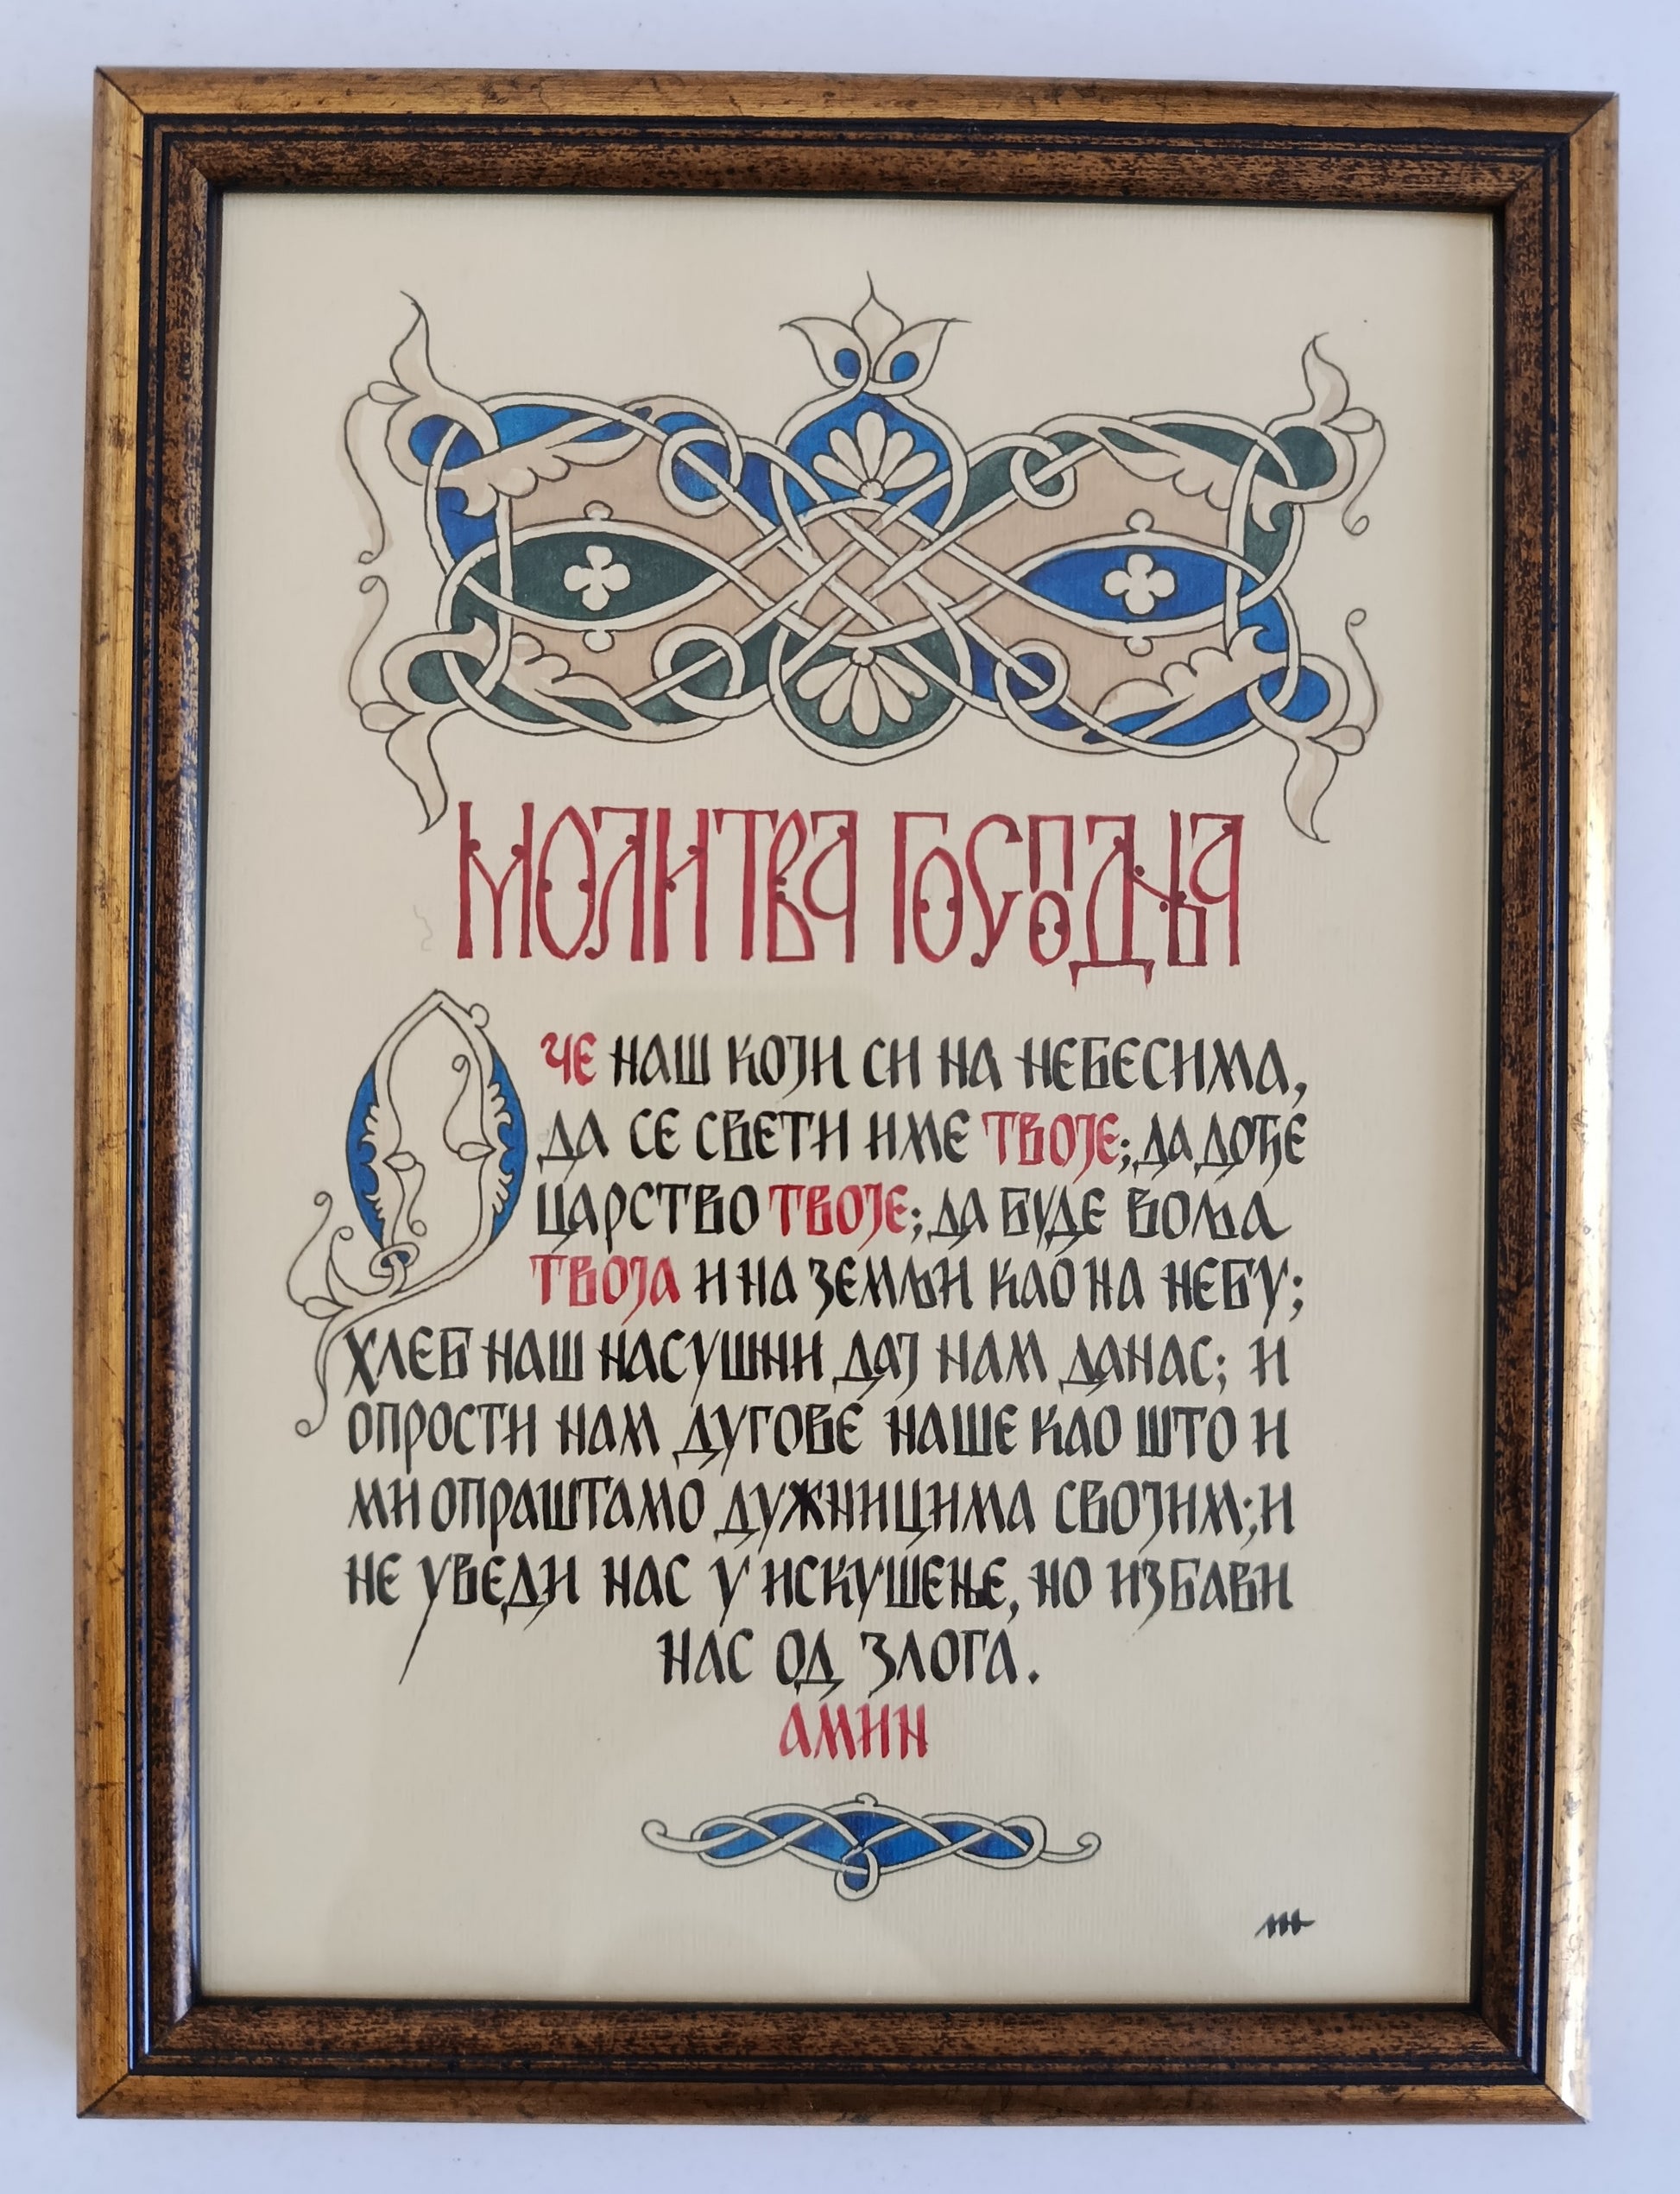 МОЛИТВА ГОСПОДЊА
ОЧЕ НАШ КОЈИ СИ НА НЕБЕСИМА,
ДА СЕ СВЕТИ ИМЕ ТВОЈЕ; ДА ДОЂЕ
ЦАРСТВО ТВОЈЕ; ДА БУДЕ ВОЉА
ТВОЈА И НА ЗЕМЉИ КАО НА НЕБУ;
ХЛЕБ НАШ НАСУШНИ ДАЈ НАМ ДАНАС; И
ОПРОСТИ НАМ ДУГОВЕ НАШЕ КАО ШТО И
МИ ОПРАШТАМО ДУЖНИЦИМА СВОЈИМ; И
НЕ УВЕДИ НАС У ИСКУШЕЊЕ, НО ИЗБАВИ
НАС ОД ЗЛОГА.
АМИН